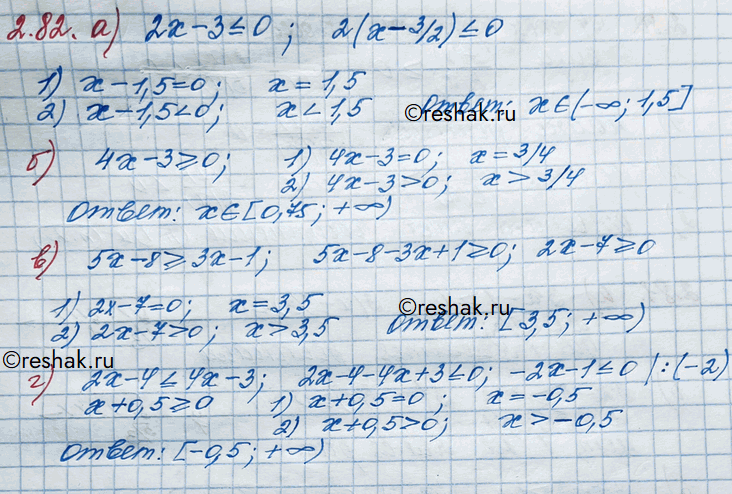 2.82. а) 2x-3≤0; 2(x-3/2)≤0
1) x-1,5=0; x=1,5
2) x-1,5<0; x<1,5 Ответ: x∈(-∞; 1,5]
©reshak.ru
б) 4x-3≥0; 1) 4x-3=0; x=3/4
2) 4x-3>0; x>3/4
Ответ: x∈[0,75; +∞)
в) 5x-8≥3x-1; 5x-8-3x+1≥0; 2x-7≥0
1) 2x-7=0; x=3,5
2) 2x-7>0; x>3,5 Ответ: [3,5; +∞)
©reshak.ru
©reshak.ru
г) 2x-4≤4x-3; 2x-4-4x+3≤0; -2x-1≤0 |:(-2)
x+0,5≥0 1) x+0,5=0; x=-0,5
2) x+0,5>0; x>-0,5
Ответ: [-0,5; +∞)